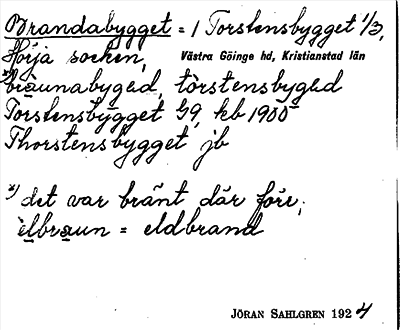 Brandabygget = 1 Torstensbygget 1/3,
Hörja socken, Västra Göinge hd, Kristianstad län
x) bräunabyged, tòrstensbyged
Torstensbygget G9, kb 1900
Thorstensbygget jb
x) det var bränt där före;
èlbraun = eldbrand
JÖRAN SAHLGREN 1924